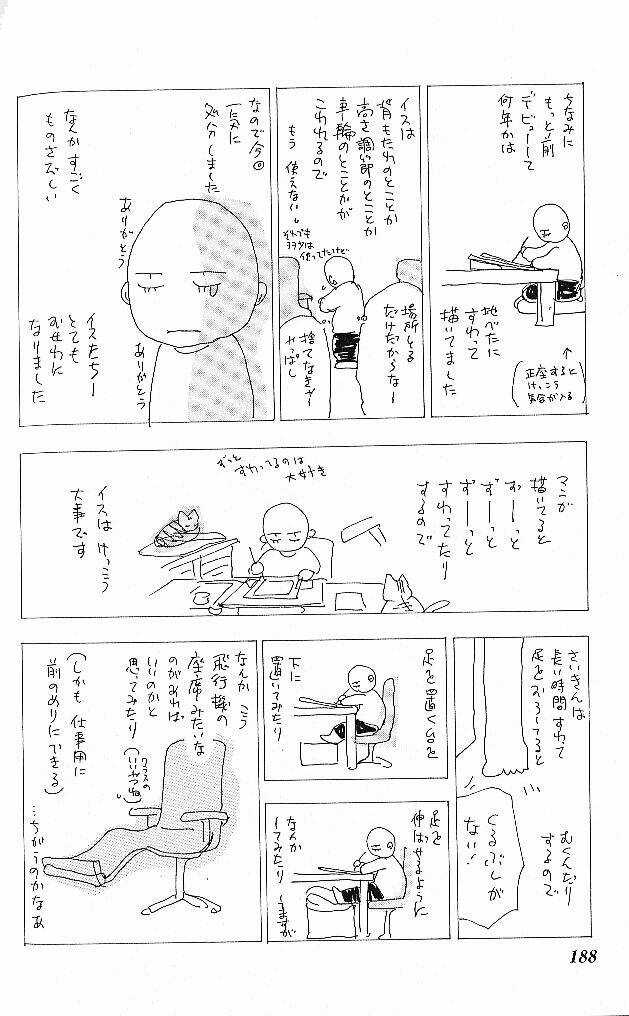 ちなみに
もっと前
デビューして
何年かは
地べたに
すわって
描いてました
↑
(正座すると
けっこう
気合が入る)
イスは
背もたれのとことか
高さ調節のとことか
車輪のとことかが
こわれるので
もう使えない。
それでも
1コ2コは
使ってたけど
場所とる
だけだからなー
捨てなきゃー
やっぱし
なので今回
一気に
処分しました
なんかすごく
ものさびしい
ありがとう
ありがとう
イスたちー
とても
おせわに
なりました
マンガ
描いてると
ずーっと
ずーっと
ずーっと
すわってたり
するので
ずっと
すわってるのは
大好き
イスはけっこう
大事です
さいきんは
長い時間すわって
足をおろしてると
むくんだり
するので
くるぶしが
ない!
足を置く台を
下に
置いてみたり
足を
伸ばせるように
なんか
してみたりしますが
なんかこう
飛行機の
座席みたいな
のがあれば
いいのかと
思ってみたり
(しかも仕事用に
前のめりにできる)
…ちがうのかなあ
188